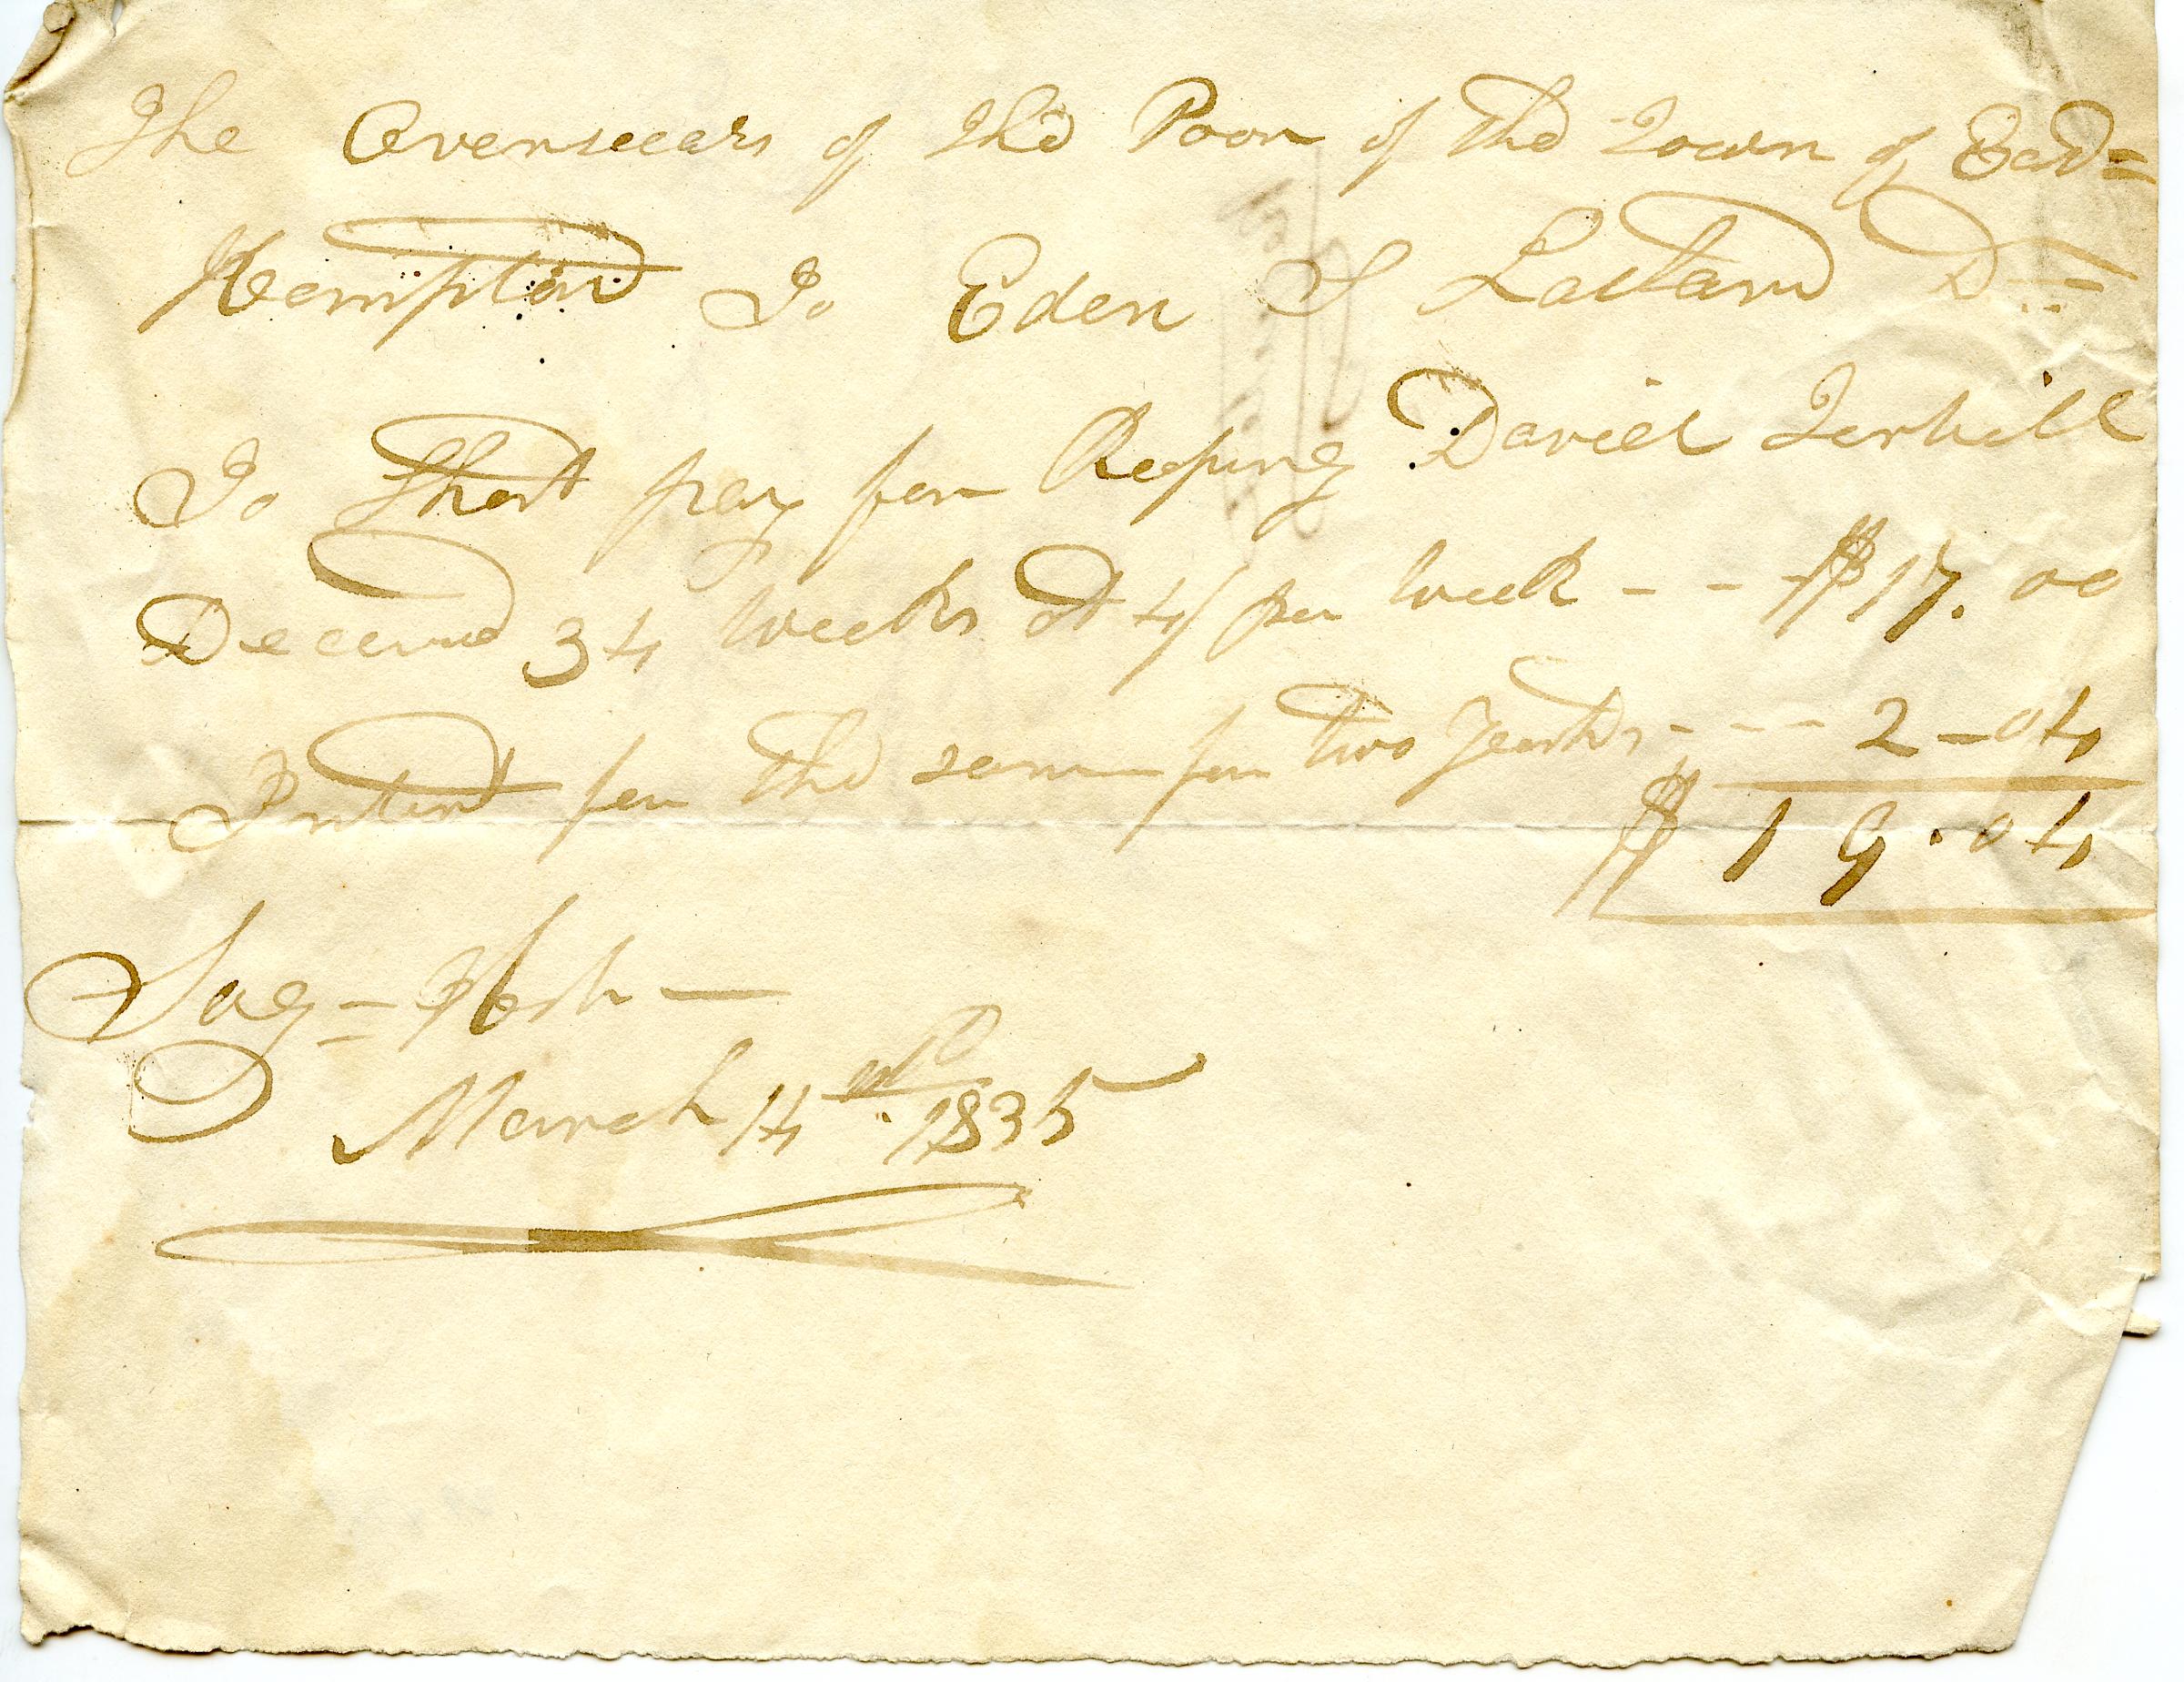 The Overseears of the Poor of the Town of East=
Hempton To Eden S Lattard Dr
To Short pay for Keping Daniel Terhill
Deceined 34 Weeks at 4/ per Week - - - $17.00
Intirst for the same for two Years - - - 2-04
$19.04
Sag = Harb
March 14 1835